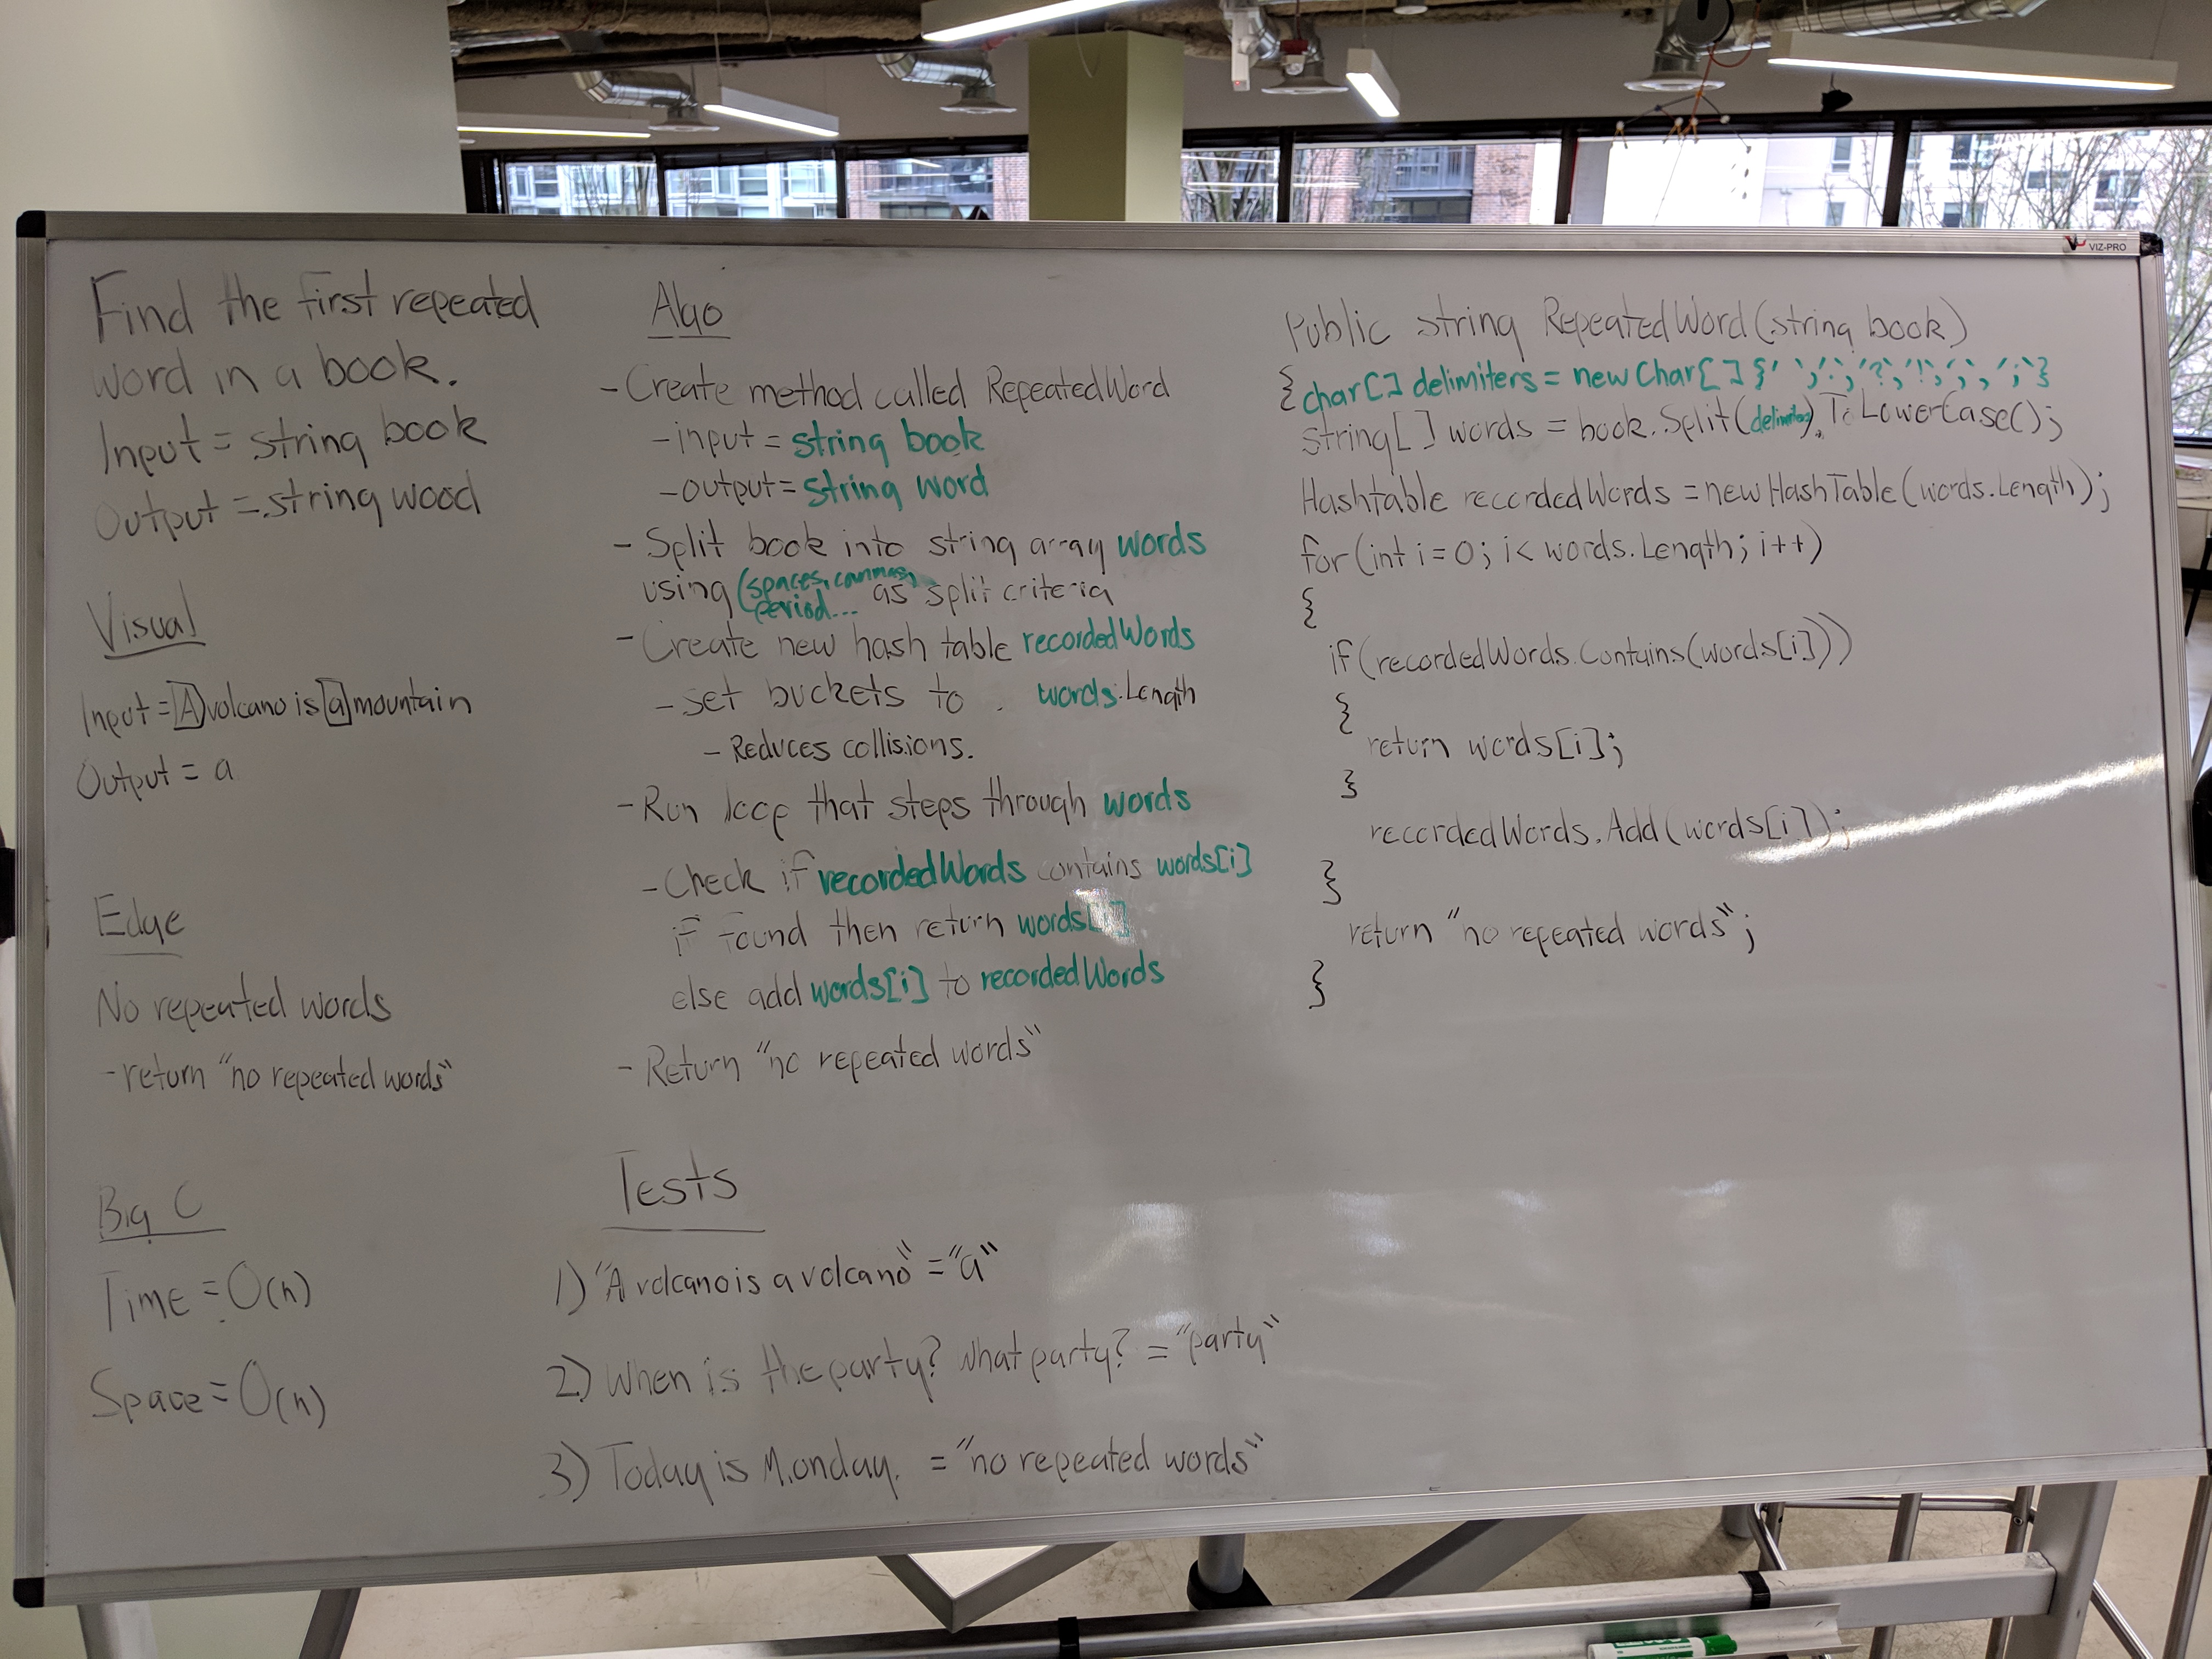 VIZ-PRO
Find the first repeated
word in a book.
Input = string book
Output = string wood
Visual
Input = A volcano is a mountain
Output = a
Edge
No repeated words
- return "no repeated words"
Big O
Time = O(n)
Space = O(n)
Algo
- Create method called RepeatedWord
- input = string book
- output = string word
- Split book into string array words
using (spaces, commas,
period... as split criteria
- Create new hash table recordedWords
- set buckets to words.Length
- Reduces collisions.
- Run loop that steps through words
- Check if recordedWords contains words[i]
if found then return words[i]
else add words[i] to recordedWords
- Return "no repeated words"
Tests
1) "A volcano is a volcano" = "a"
2) When is the party? What party? = "party"
3) Today is Monday. = "no repeated words"
Public string RepeatedWord(string book)
{ char[] delimiters = new Char[] {' ', '.', '?', '!', ',', ';'}
string[] words = book.Split(delimiters).ToLowerCase();
Hashtable recordedWords = new HashTable(words.Length);
for(int i = 0; i < words.Length; i++)
{
if(recordedWords.Contains(words[i]))
{
return words[i];
}
recordedWords.Add(words[i]);
}
return "no repeated words";
}